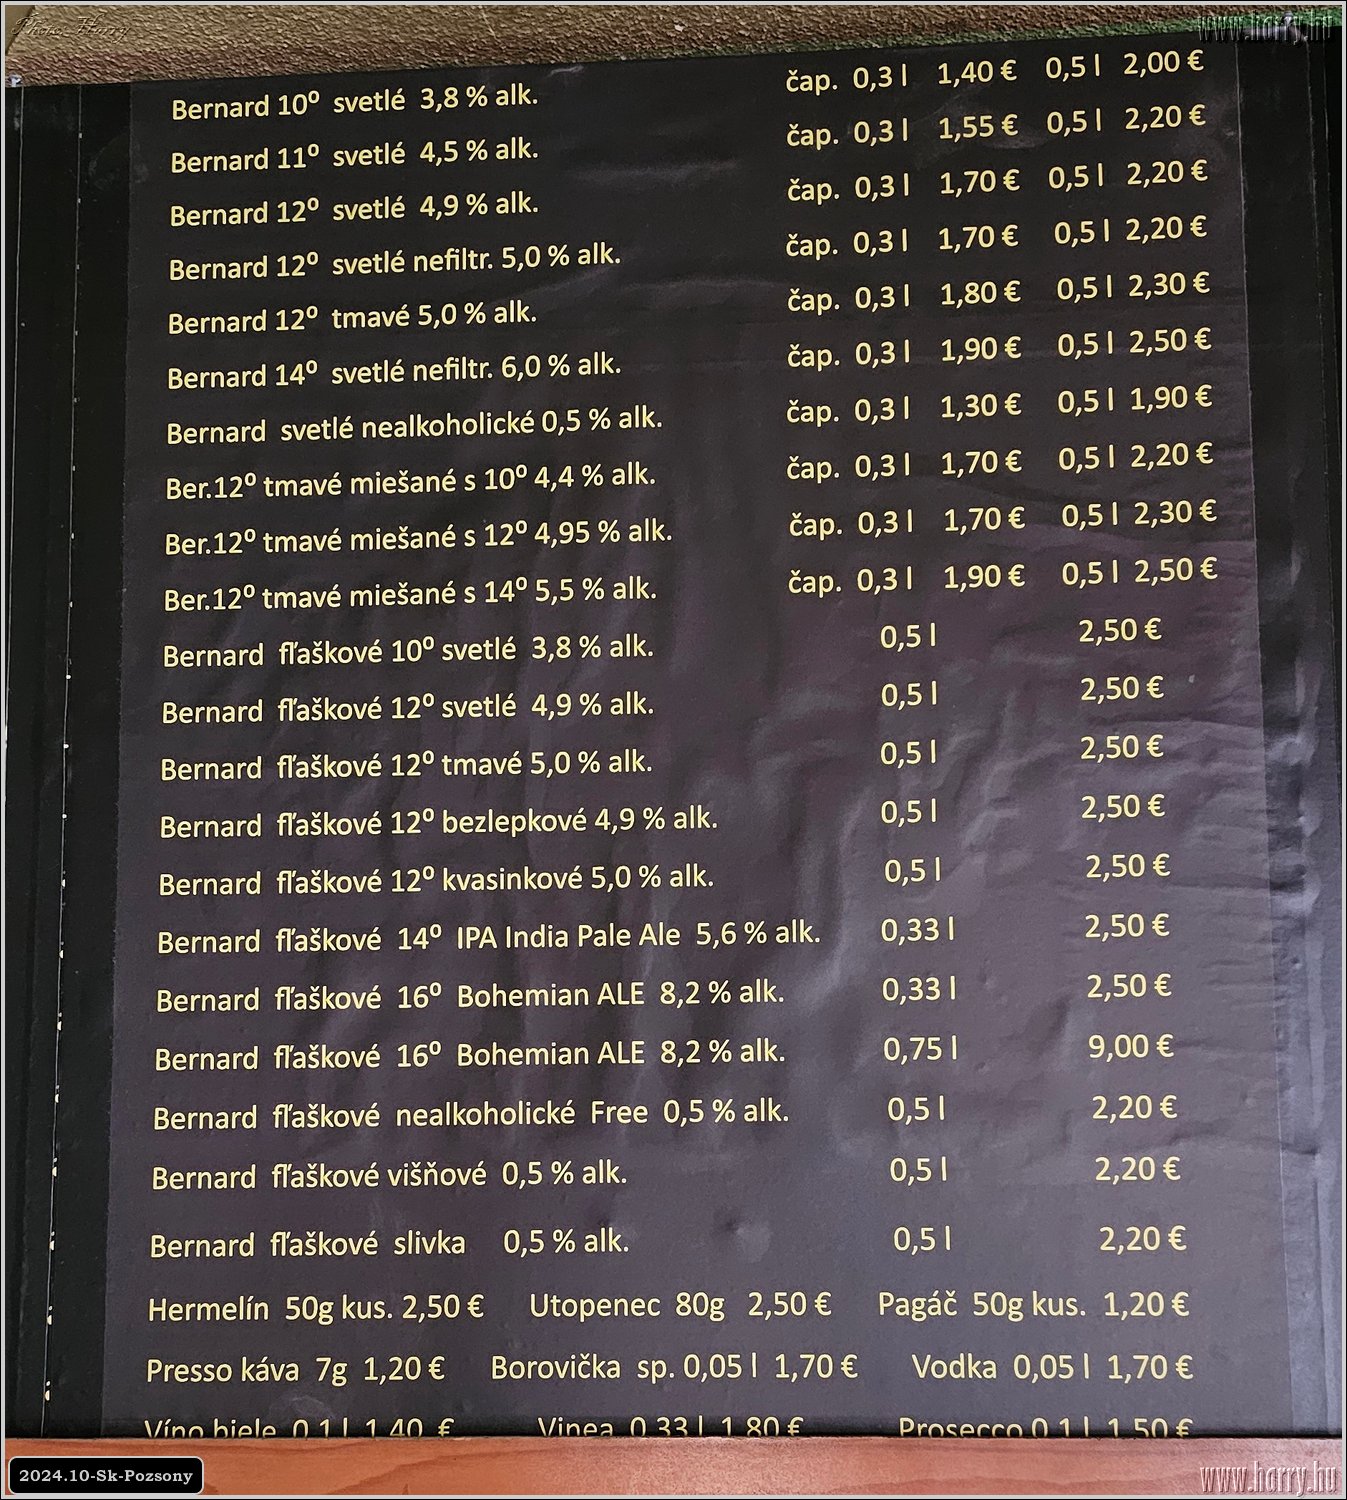 Photo: Harry
www.harry.hu
Bernard 10º svetlé 3,8 % alk. čap. 0,3 l 1,40 € 0,5 l 2,00 €
Bernard 11º svetlé 4,5 % alk. čap. 0,3 l 1,55 € 0,5 l 2,20 €
Bernard 12º svetlé 4,9 % alk. čap. 0,3 l 1,70 € 0,5 l 2,20 €
Bernard 12º svetlé nefiltr. 5,0 % alk. čap. 0,3 l 1,70 € 0,5 l 2,20 €
Bernard 12º tmavé 5,0 % alk. čap. 0,3 l 1,80 € 0,5 l 2,30 €
Bernard 14º svetlé nefiltr. 6,0 % alk. čap. 0,3 l 1,90 € 0,5 l 2,50 €
Bernard svetlé nealkoholické 0,5 % alk. čap. 0,3 l 1,30 € 0,5 l 1,90 €
Ber.12º tmavé miešané s 10º 4,4 % alk. čap. 0,3 l 1,70 € 0,5 l 2,20 €
Ber.12º tmavé miešané s 12º 4,95 % alk. čap. 0,3 l 1,70 € 0,5 l 2,30 €
Ber.12º tmavé miešané s 14º 5,5 % alk. čap. 0,3 l 1,90 € 0,5 l 2,50 €
Bernard fľaškové 10º svetlé 3,8 % alk. 0,5 l 2,50 €
Bernard fľaškové 12º svetlé 4,9 % alk. 0,5 l 2,50 €
Bernard fľaškové 12º tmavé 5,0 % alk. 0,5 l 2,50 €
Bernard fľaškové 12º bezlepkové 4,9 % alk. 0,5 l 2,50 €
Bernard fľaškové 12º kvasinkové 5,0 % alk. 0,5 l 2,50 €
Bernard fľaškové 14º IPA India Pale Ale 5,6 % alk. 0,33 l 2,50 €
Bernard fľaškové 16º Bohemian ALE 8,2 % alk. 0,33 l 2,50 €
Bernard fľaškové 16º Bohemian ALE 8,2 % alk. 0,75 l 9,00 €
Bernard fľaškové nealkoholické Free 0,5 % alk. 0,5 l 2,20 €
Bernard fľaškové višňové 0,5 % alk. 0,5 l 2,20 €
Bernard fľaškové slivka 0,5 % alk. 0,5 l 2,20 €
Hermelín 50g kus. 2,50 € Utopenec 80g 2,50 € Pagáč 50g kus. 1,20 €
Presso káva 7g 1,20 € Borovička sp. 0,05 l 1,70 € Vodka 0,05 l 1,70 €
Víno biele 0,1 l 1,40 € Vinea 0,33 l 1,80 € Prosecco 0,1 l 1,50 €
2024.10-Sk-Pozsony
www.harry.hu